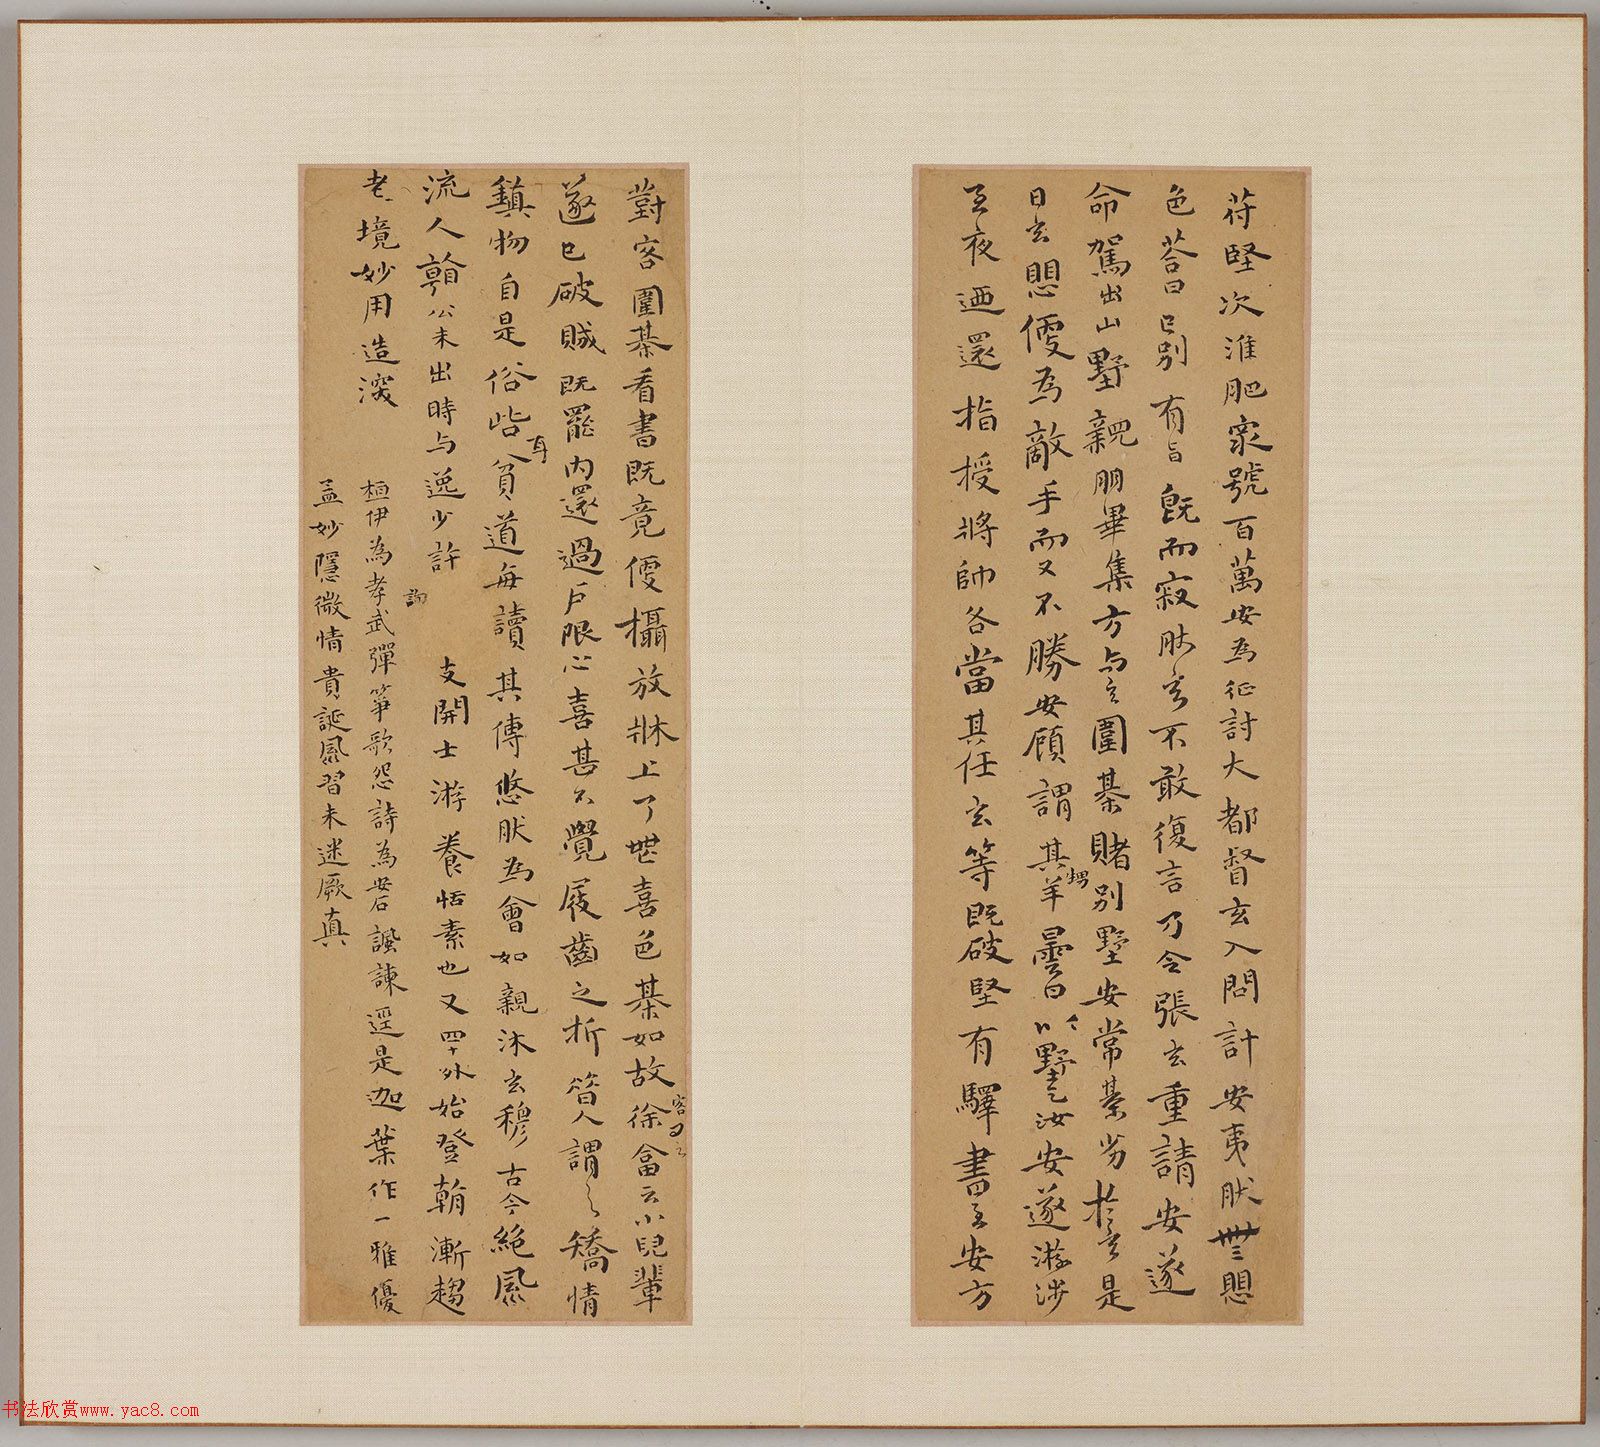 苻堅次淮肥衆號百萬安為征討大都督玄入問計安夷然無愳
色荅曰已別有旨既而寂然玄不敢復言乃令張玄重請安遂
命駕出山墅親朋畢集方与玄圍棊賭別墅安常棊劣於玄是
日玄愳便為敵手而又不勝安顧謂其甥羊曇曰以墅乞汝安遂游涉
至夜迺還指授將帥各當其任玄等既破堅有驛書至安方
對客圍棊看書既竟便攝放牀上了無喜色棊如故客問之徐畣云小兒輩
遂已破賊既罷內還過戶限心喜甚不覺屐齒之折人謂之矯情
鎮物自是俗耳貧道每讀其傳悠然為會如親沐玄穆古今絕風
流人公未出時与逸少許詢支開士游養恬素也又四十外始登朝漸趨
老境妙用造深
桓伊為孝武彈箏歌怨詩為安石諷諫逕是迦葉作一雅優
孟妙隱微情貴誕風習未迷厥真
书法欣赏www.yac8.com